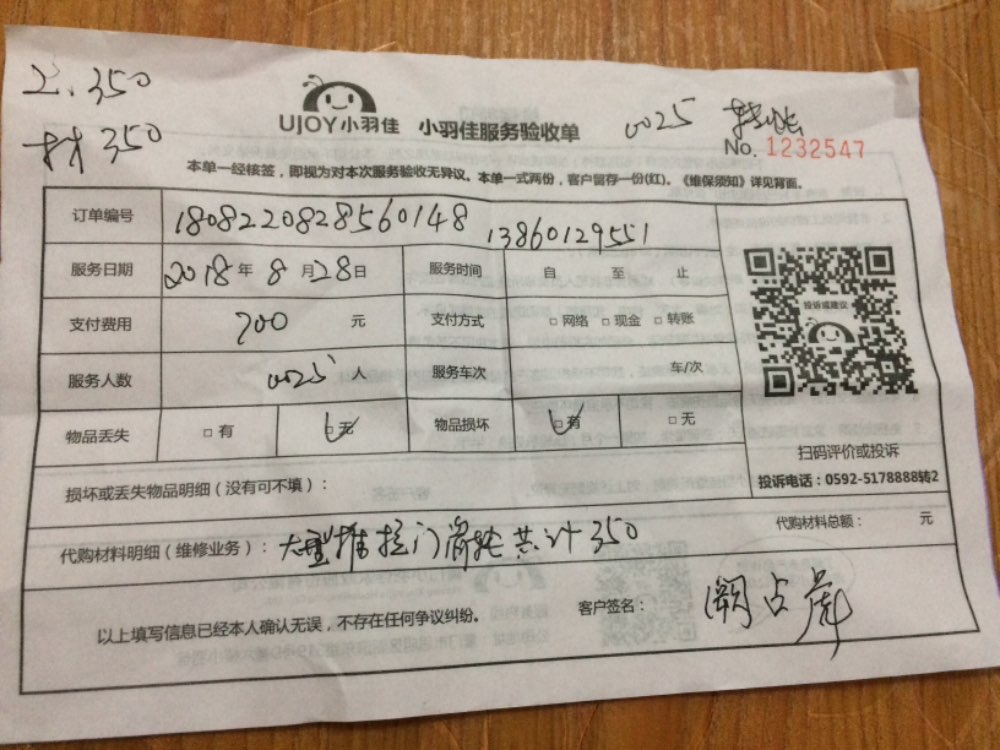 工.350
材350
UJOY小羽佳 小羽佳服务验收单
0025 转账
No. 1232547
本单一经接签，即视为对本次服务验收无异议。本单一式两份，客户留存一份(红)。《维保须知》详见背面。
订单编号 1808220828560148 13860129551
服务日期 2018年 8月28日 服务时间 自 至 止
支付费用 700 元 支付方式 □ 网络 □ 现金 □ 转账
服务人数 0025 人 服务车次 车/次
物品丢失 □ 有 □ 无 物品损坏 □ 有 □ 无
投诉或建议
扫码评价或投诉
投诉电话：0592-5178888转2
损坏或丢失物品明细（没有可不填）：
代购材料明细（维修业务）：大型推拉门滑轮共计350
代购材料总额： 元
以上填写信息已经本人确认无误，不存在任何争议纠纷。 客户签名：